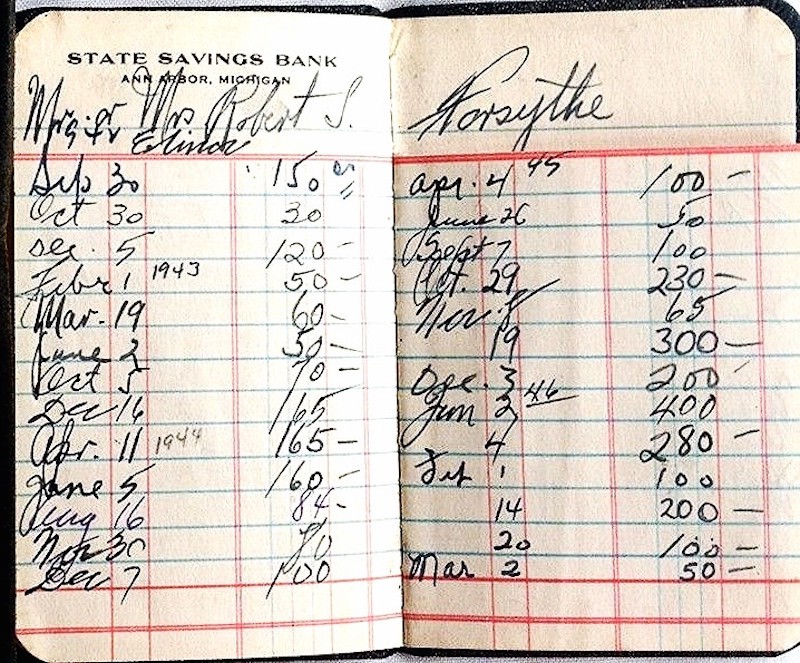 STATE SAVINGS BANK
ANN ARBOR, MICHIGAN
Mr. or Mrs Robert S.
Elinor
Sep 30 150 00
Oct 30 30 "
Dec. 5 120 -
Febr 1 1943 50 -
Mar. 19 60 -
June 2 50 -
Oct 5 70 -
Dec 16 165
Apr. 11 1944 165 -
June 5 160 -
Aug 16 84 -
Nov 30 70
Dec 7 100
Forsythe
Apr. 4 45 100 -
June 26 50
Sept 7 100
Oct. 29 230 -
Nov. 8 65
19 300 -
Dec. 3 200
Jan 2 46 400
4 280 -
Feb 1 100
14 200 -
20 100 -
Mar 2 50 -